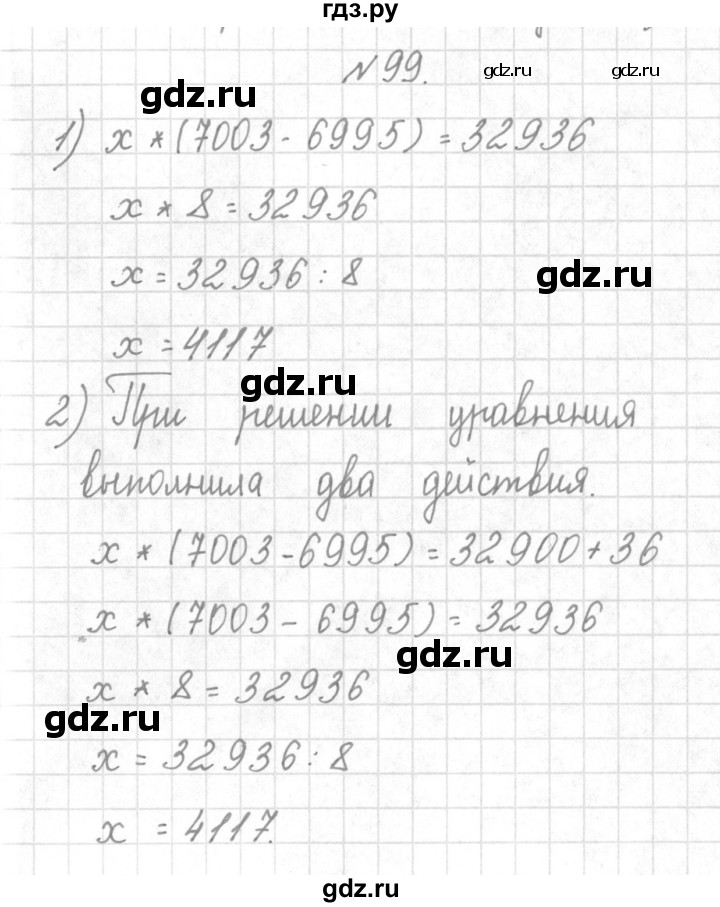 гдз.ру
№99.
gdz.ru gdz.ru
gdz.ru
1) x * (7003 - 6995) = 32936
x * 8 = 32936
x = 32936 : 8
gdz.ru
x = 4117
gdz.ru
2) При решении уравнения
выполнила два действия.
x * (7003 - 6995) = 32900 + 36
x * (7003 - 6995) = 32936
gdz.ru
x * 8 = 32936
gdz.ru
x = 32936 : 8
x = 4117.
gdz.ru